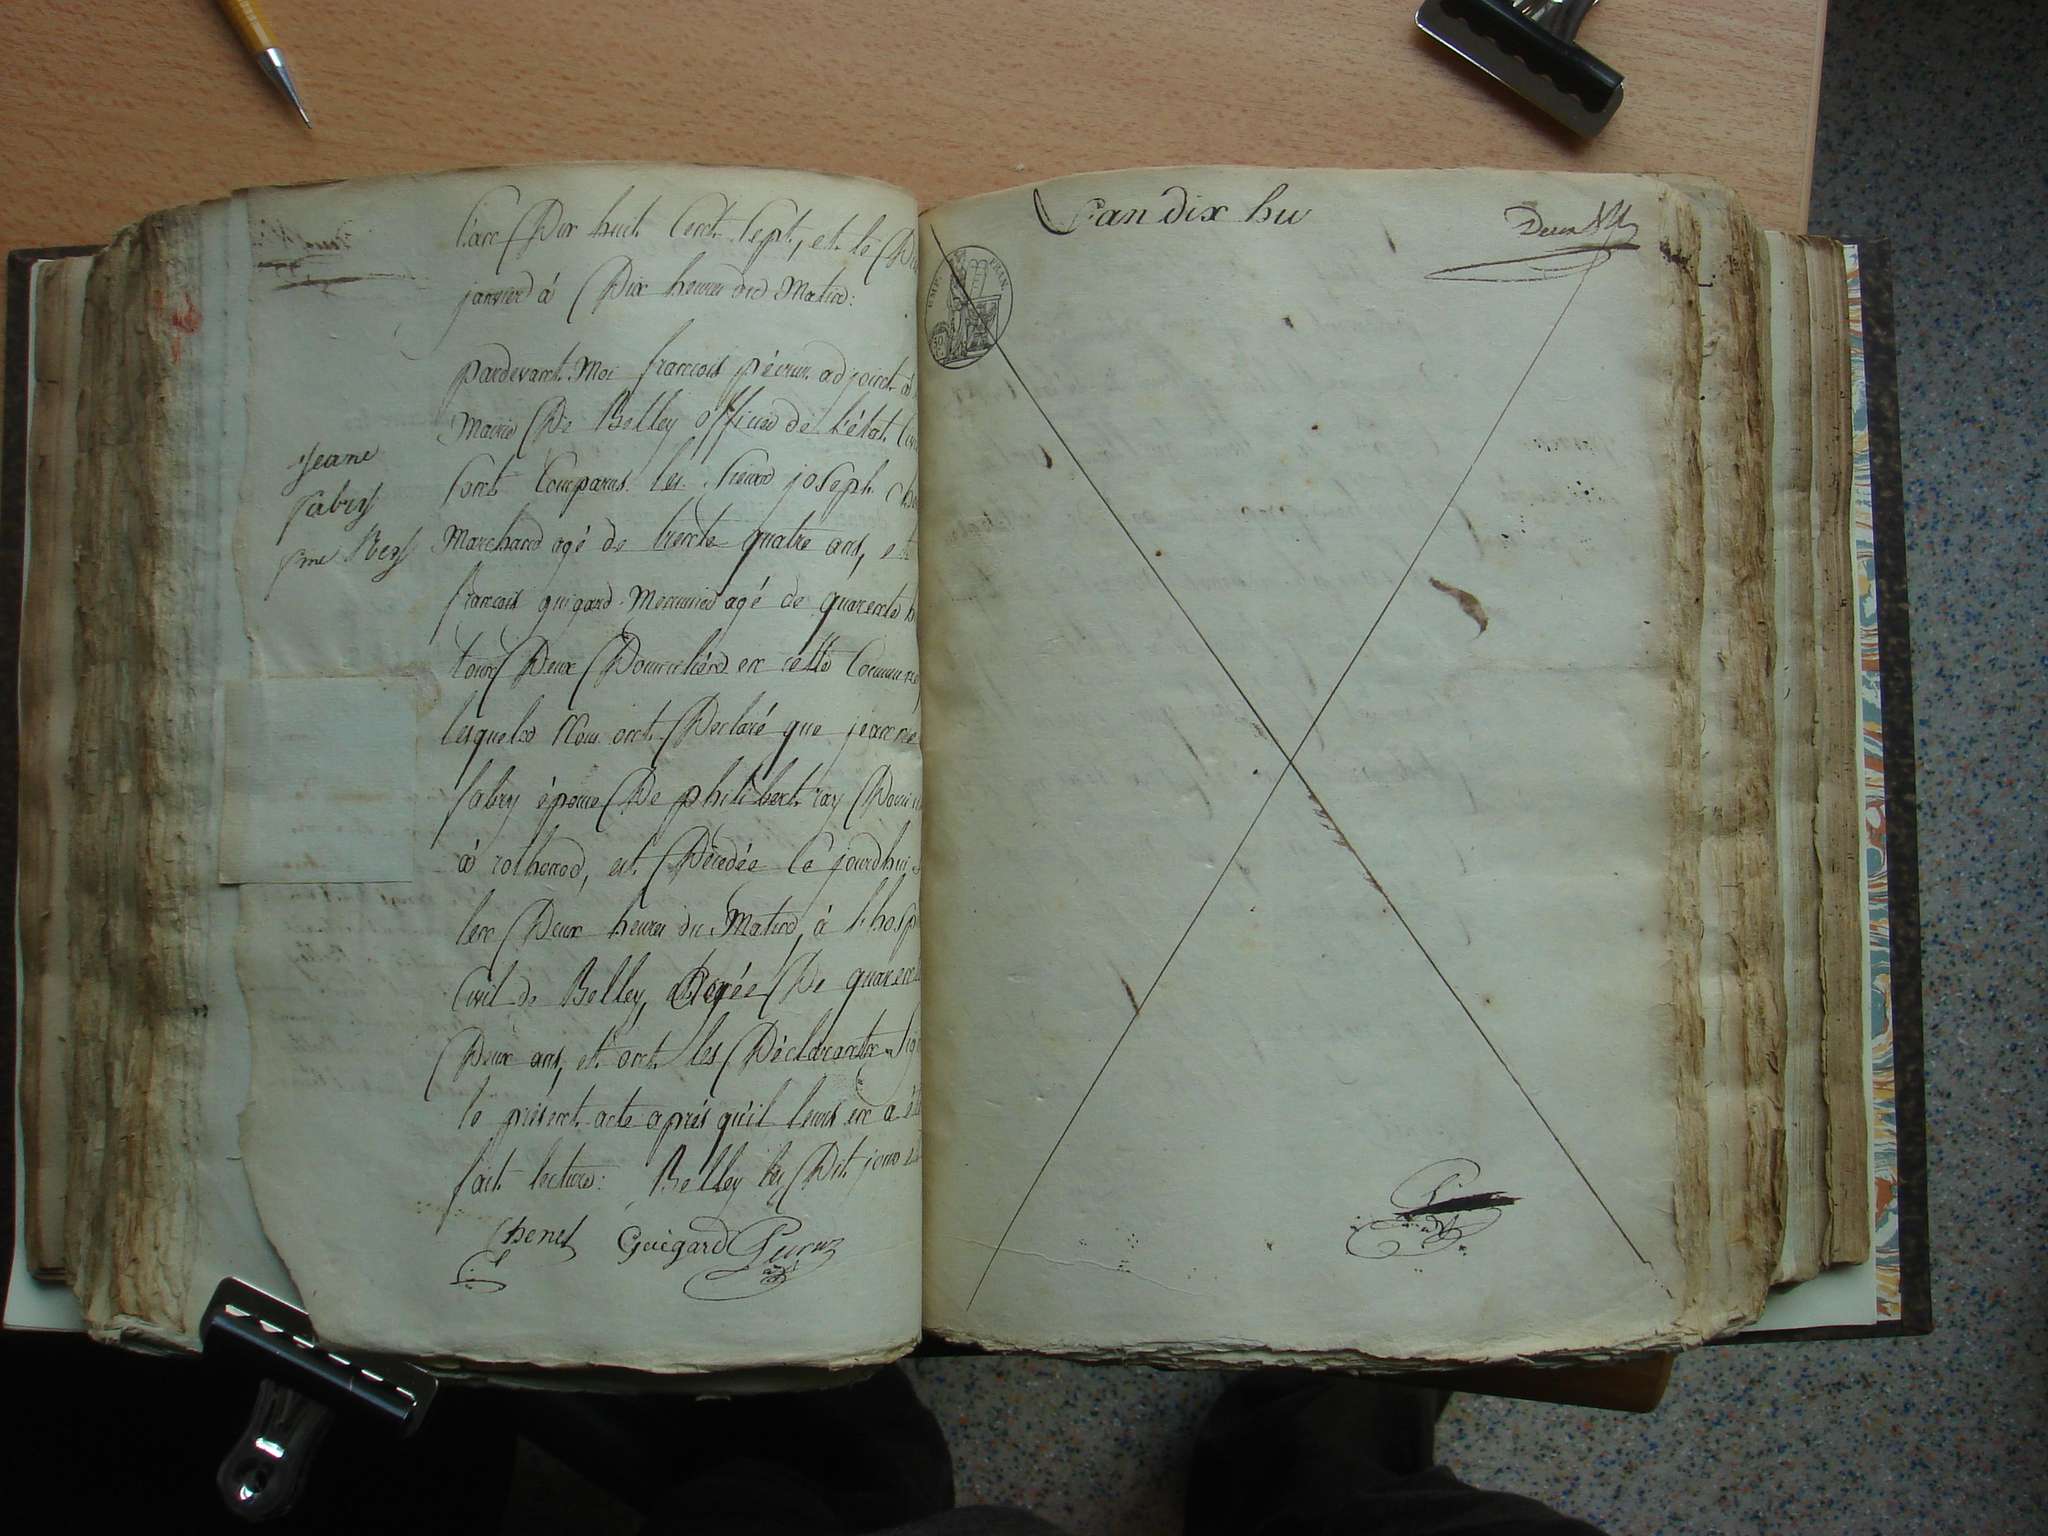 Jeane
fabry
fme Rey
l'an Dix huit Cent Sept, et le
janvier à Dix heures du Matin:
pardevant Moi françois péviruz adjoint à
Mairie De Belley officier de l'état
sont Comparus les Sieur joseph
Marchand agé de trente quatre ans, et
françois guigard Menuisier agé de quarente
tous Deux Domiciliés en cette Commune
lesquels Nous ont Déclaré que jeanne
fabry épouse De philibert ray
à rothonod, est Décédée Ce jourdhui
les Deux heures du Matin, à l'hosp
Civil de Belley, Agée De quarent
Deux ans, et ont les Déclarants sig
le présent acte après qu'il leurs en a été
fait lecture: Belley les Dit jour
Chenet Guigard
L'an dix hu
Deux
EMP. FRAN.